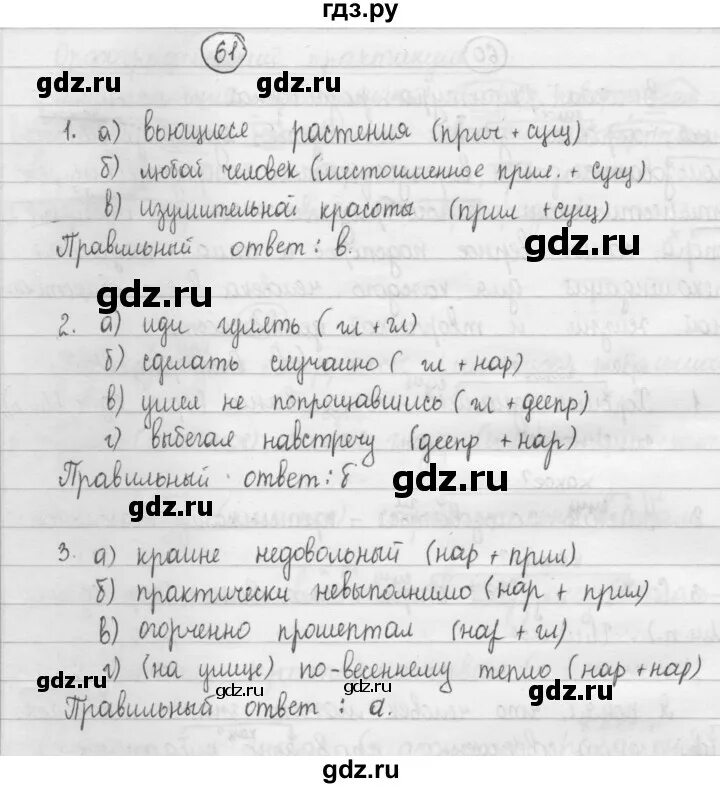 гдз.ру
61
gdz.ru gdz.ru gdz.ru
1. а) вьющиеся растения (прич + сущ)
б) любой человек (местоименное прил. + сущ)
в) изумительной красоты (прил + сущ)
Правильный ответ: в.
gdz.ru
gdz.ru
2. а) иди гулять (гл + гл)
б) сделать случайно ( гл + нар)
в) ушел не попрощавшись (гл + деепр)
г) выбегая навстречу (деепр + нар)
Правильный ответ: б
gdz.ru
gdz.ru
3. а) крайне недовольный (нар + прил)
б) практически невыполнимо (нар + прил)
в) огорченно прошептал (нар + гл)
г) (на улице) по-весеннему тепло (нар + нар)
gdz.ru gdz.ru gdz.ru gdz.ru
Правильный ответ : а.
gdz.ru